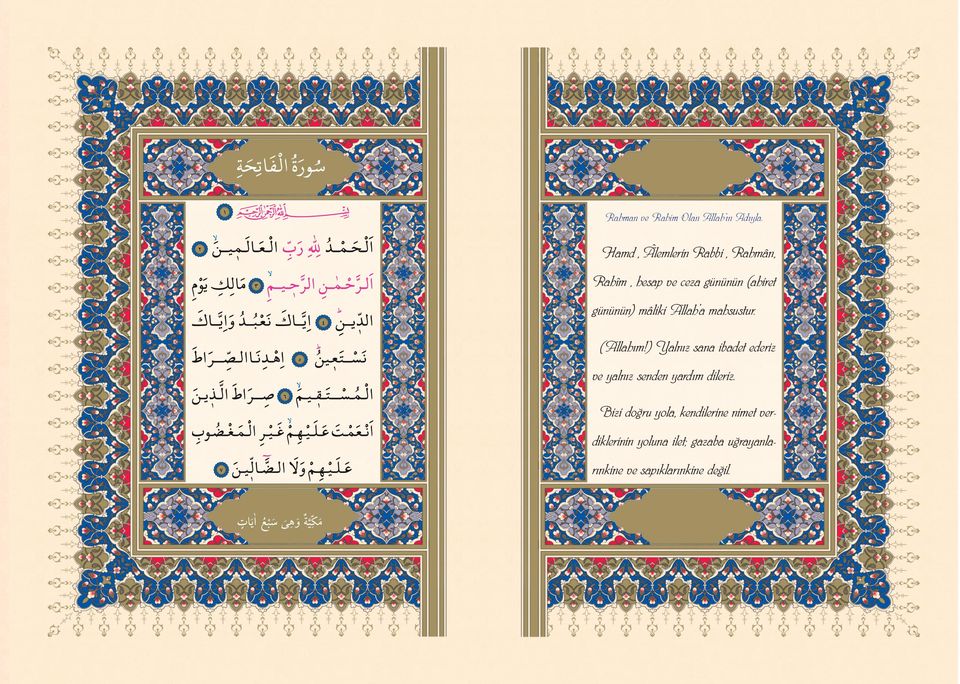 سُورَةُ الْفَاتِحَةِ
بِسْمِ اللّٰهِ الرَّحْمٰنِ الرَّحِيمِ ﴿١﴾
اَلْحَمْدُ لِلّٰهِ رَبِّ الْعَالَمِينَۙ ﴿٢﴾
اَلرَّحْمٰنِ الرَّحِيمِۙ ﴿٣﴾ مَالِكِ يَوْمِ
الدِّينِۜ ﴿٤﴾ اِيَّاكَ نَعْبُدُ وَاِيَّاكَ
نَسْتَعِينُۜ ﴿٥﴾ اِهْدِنَا الصِّرَاطَ
الْمُسْتَقِيمَۙ ﴿٦﴾ صِرَاطَ الَّذِينَ
اَنْعَمْتَ عَلَيْهِمْۙ غَيْرِ الْمَغْضُوبِ
عَلَيْهِمْ وَلَا الضَّٓالِّينَ ﴿٧﴾
مَكِّيَّةٌ وَهِىَ سَبْعُ اٰيَاتٍ
Rahman ve Rahim Olan Allah'ın Adıyla.
Hamd, Âlemlerin Rabbi, Rahmân,
Rahîm, hesap ve ceza gününün (ahiret
gününün) mâliki Allah'a mahsustur.
(Allahım!) Yalnız sana ibadet ederiz
ve yalnız senden yardım dileriz.
Bizi doğru yola, kendilerine nimet ver-
diklerinin yoluna ilet; gazaba uğrayanla-
rınkine ve sapıklarınkine değil.